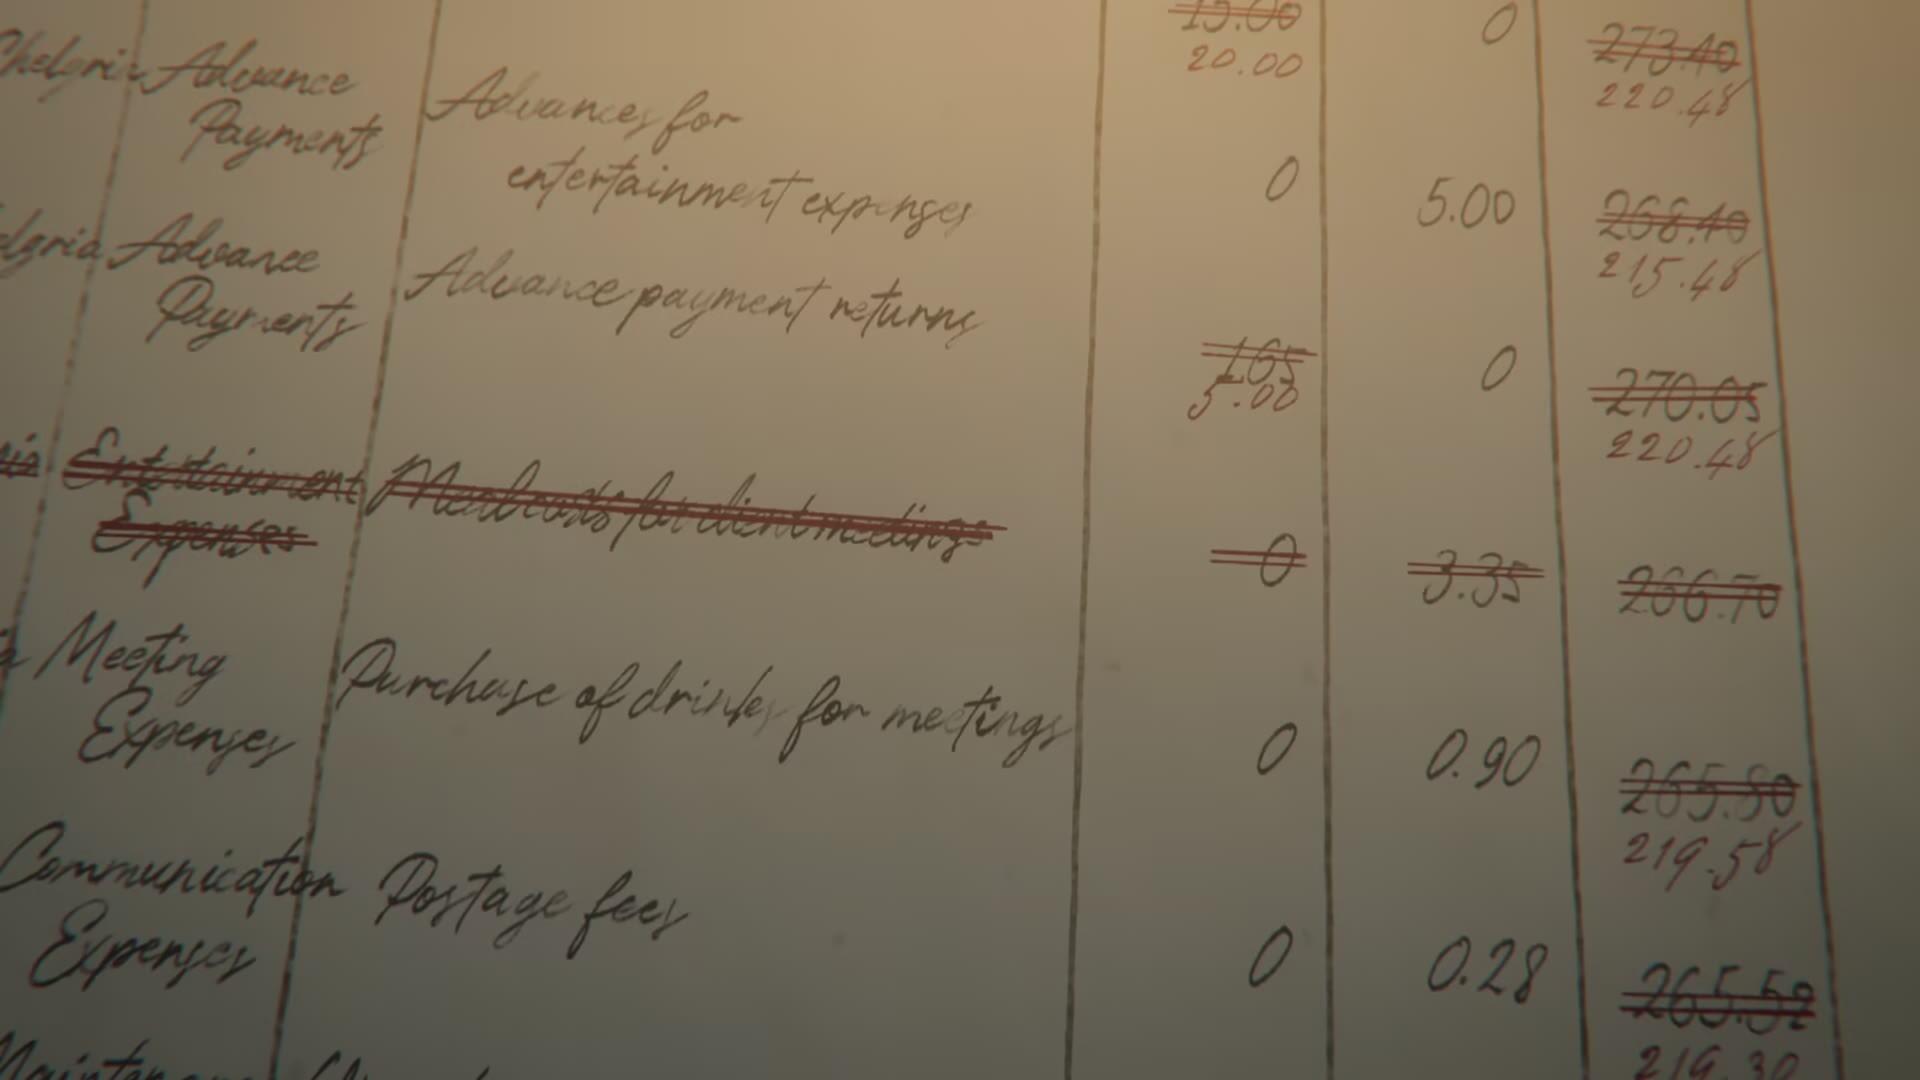 15.00 0 273.40
20.00 220.48
Chelgria Advance Payments Advances for entertainment expenses 0 5.00 268.40
215.48
elgria Advance Payments Advance payment returns 1.65 0 270.05
5.00 220.48
ria Entertainment Expenses Meal costs for client meetings 0 3.35 266.70
a Meeting Expenses Purchase of drinks for meetings 0 0.90 265.80
219.58
Communication Expenses Postage fees 0 0.28 265.52
219.30